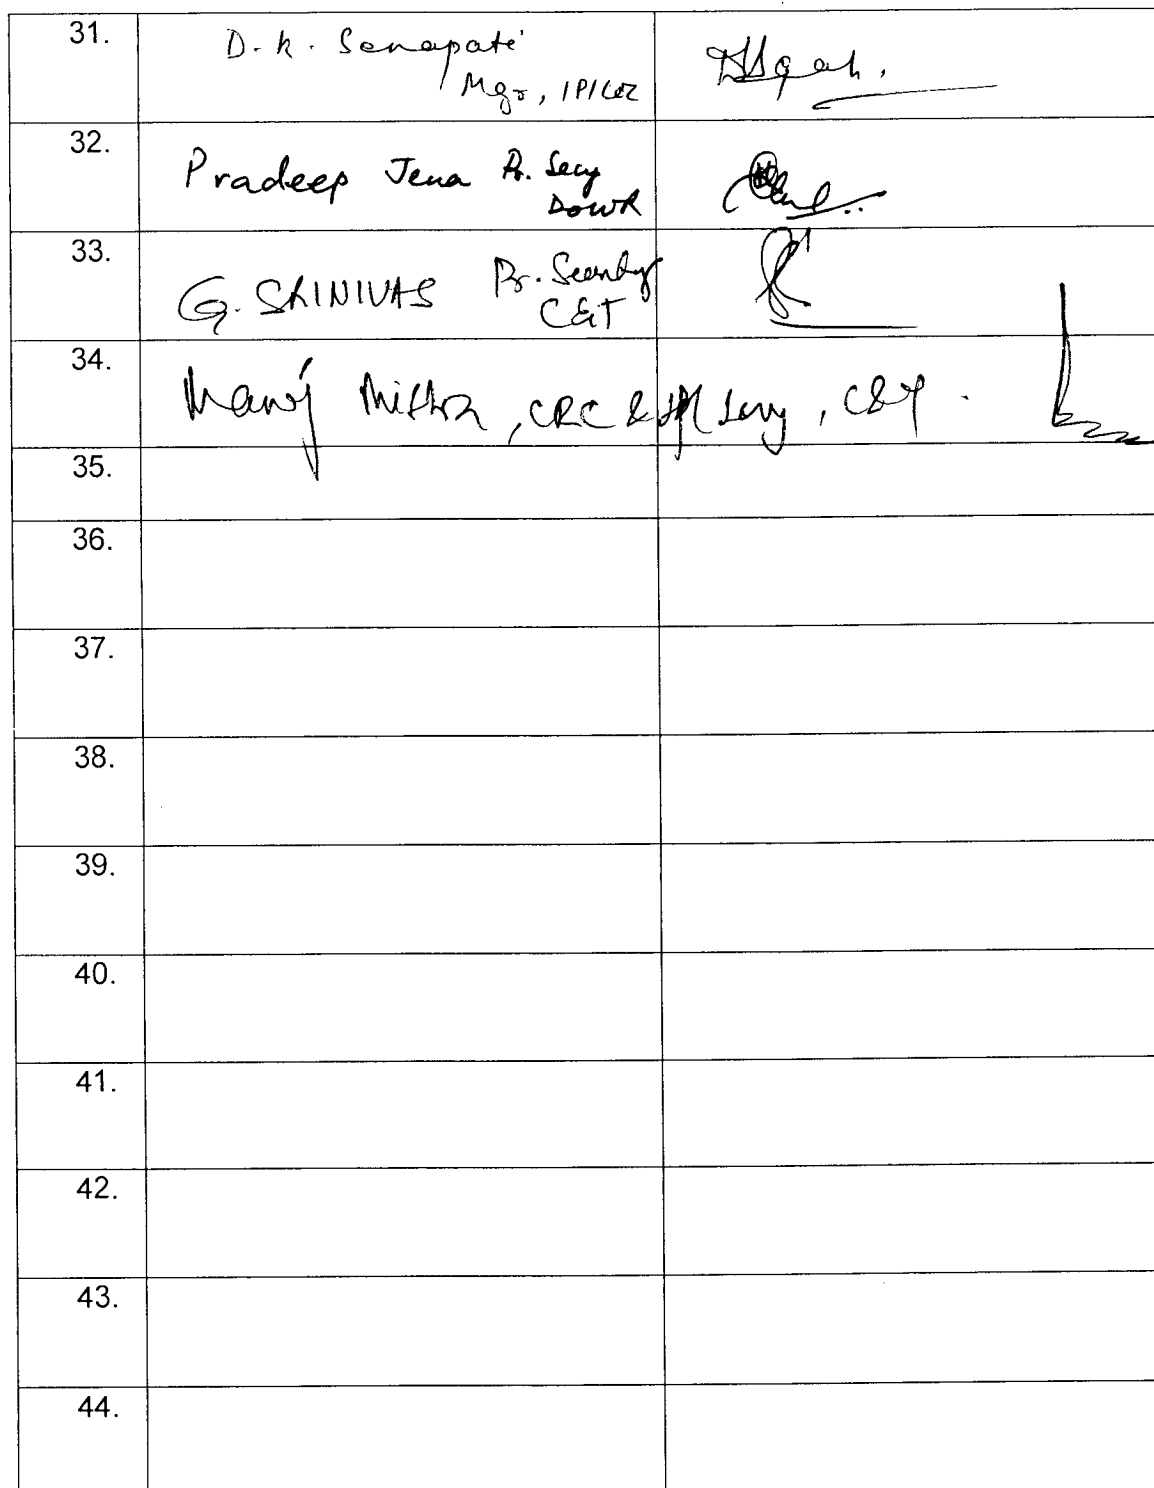 31. D. K. Senapati
Mgr, IPICOL
32. Pradeep Jena Pr. Secy
DOWR
33. G. SRINIVAS Pr. Secretary
C&T
34. Manoj Mishra, CRC & Spl Secy, C&T.
35.
36.
37.
38.
39.
40.
41.
42.
43.
44.